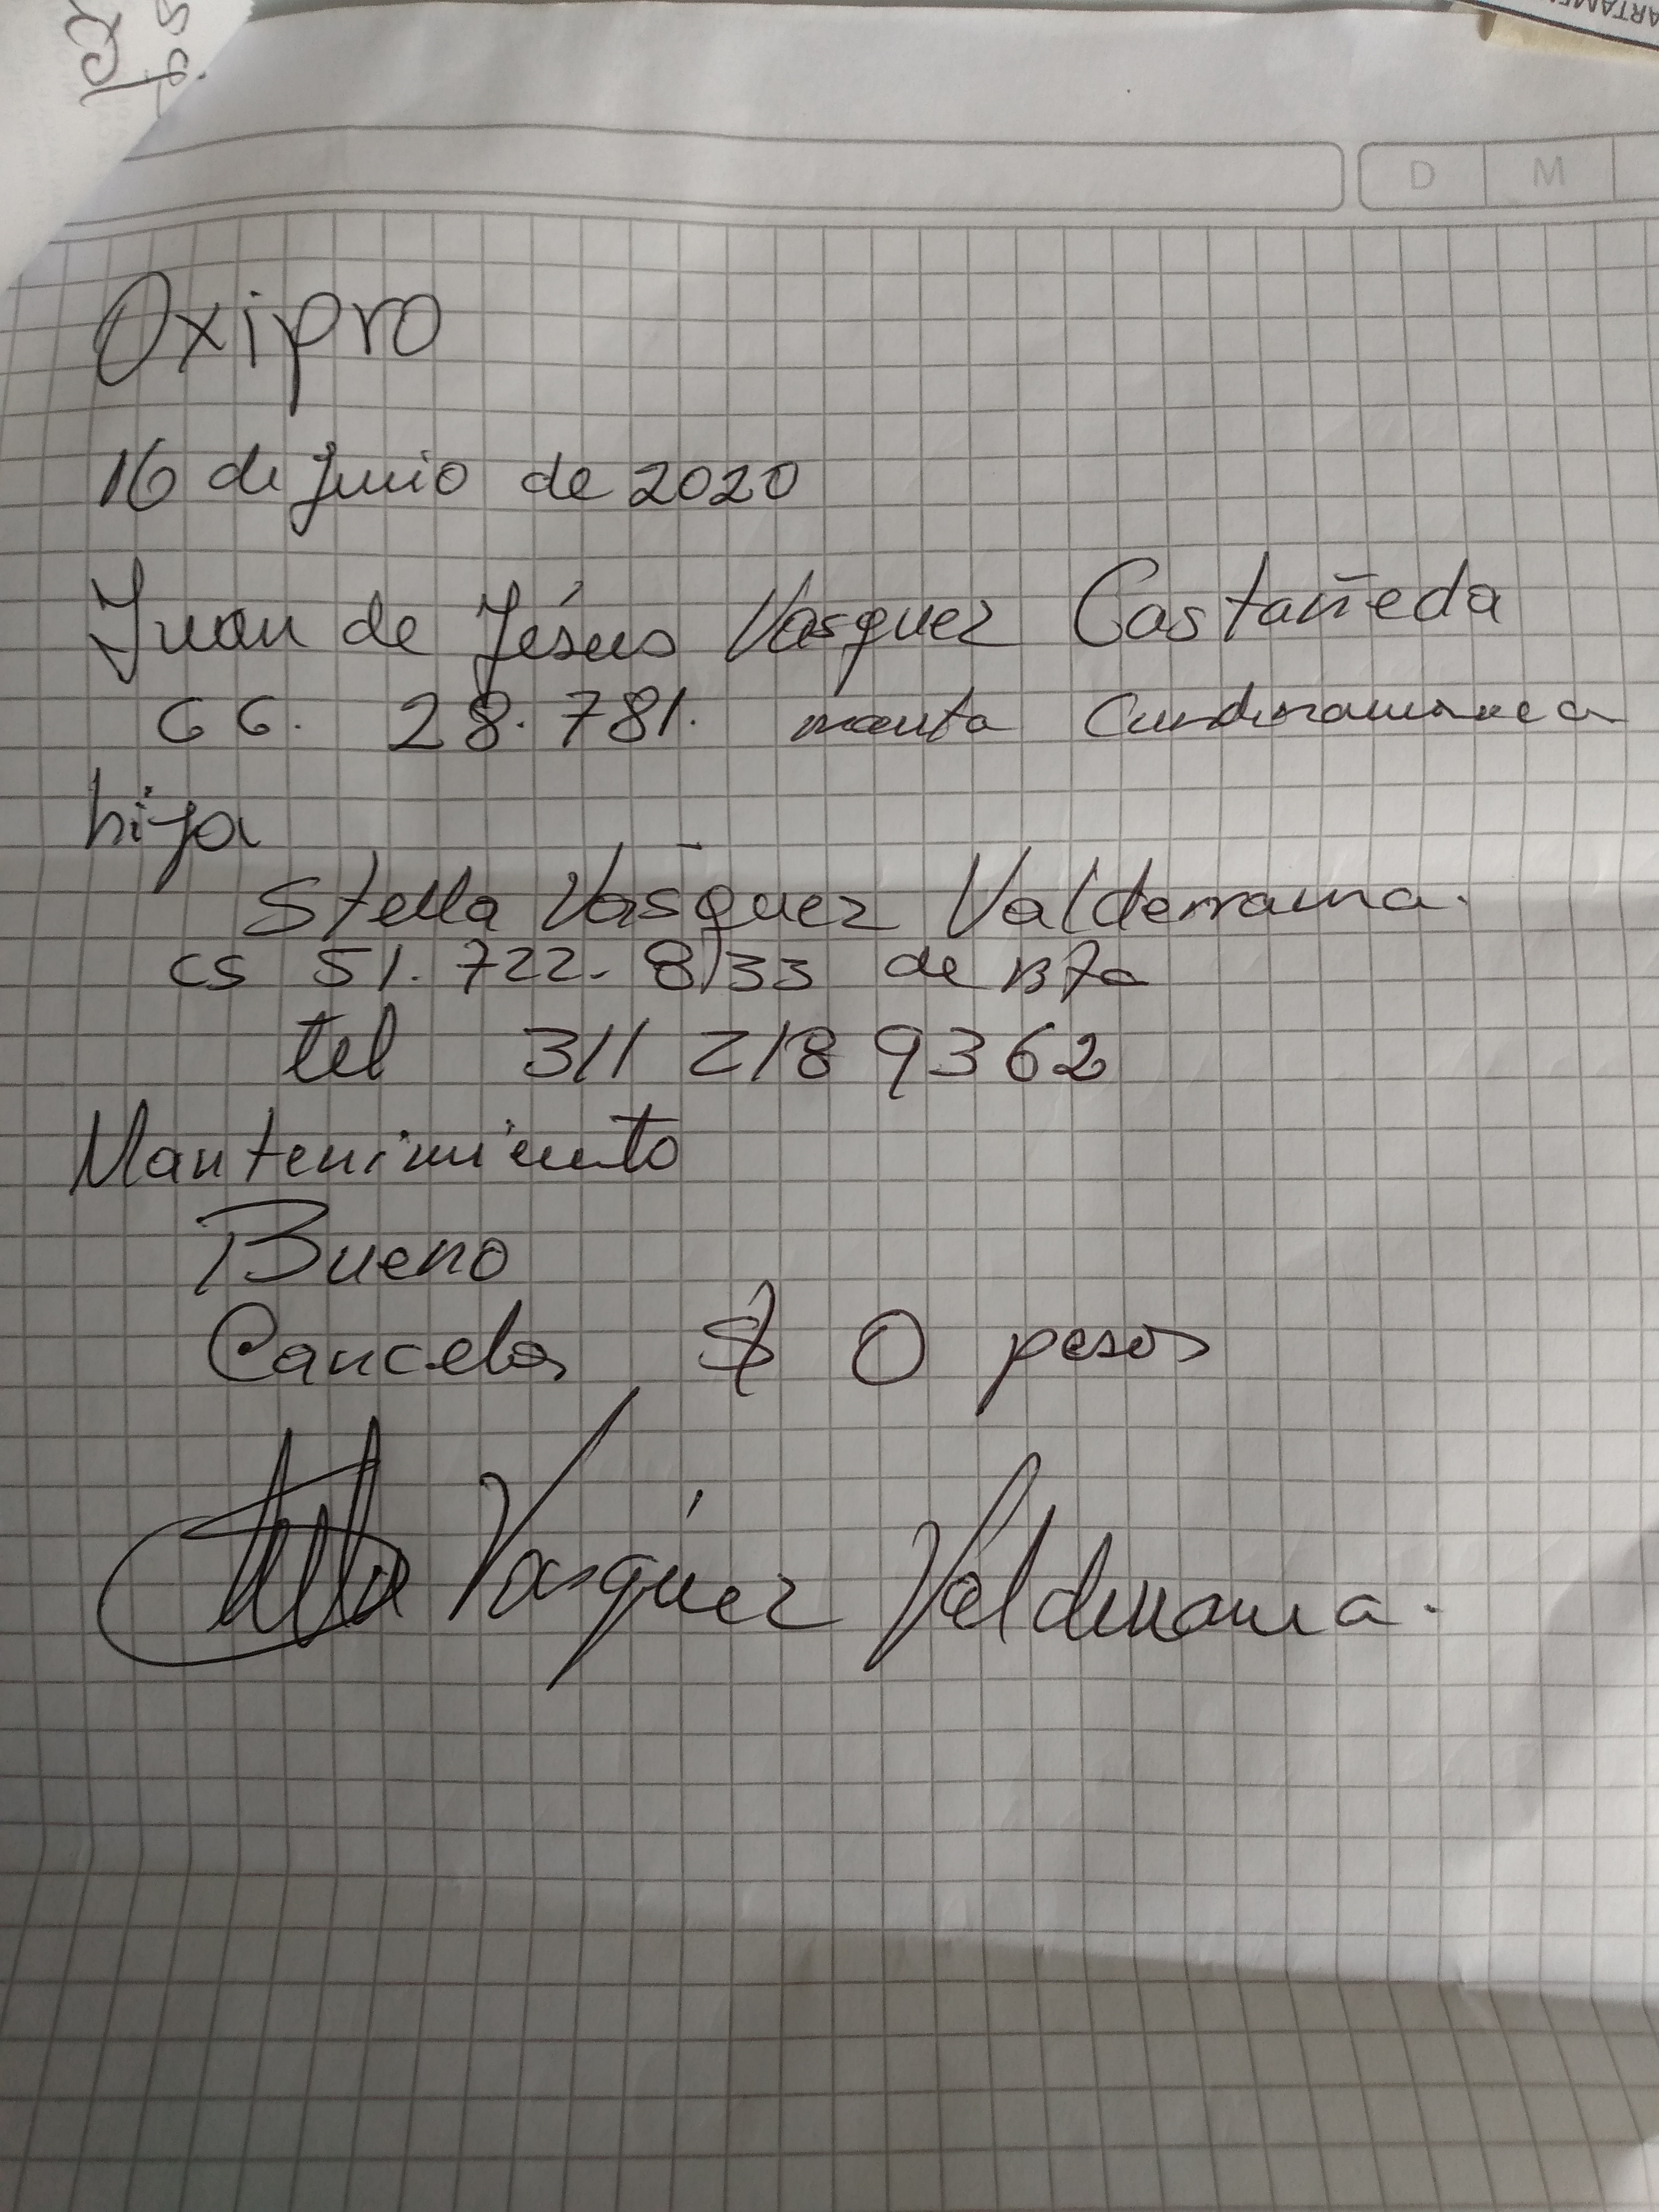 D M
Oxipro
16 de Junio de 2020
Juan de Jésus Vasquez Castañeda
CC. 28.781. manta Cundinamarca
hija
Stella Vásquez Valderrama.
cs 51.722.833 de Bta
tel 311 218 9362
Mantenimiento
Bueno
Cancelo $ 0 pesos
Stella Vasquez Valderrama.